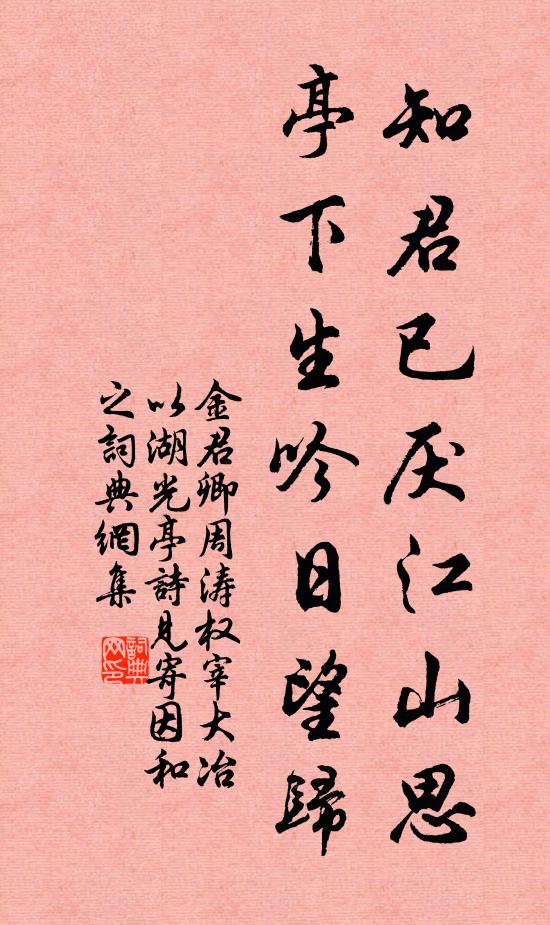 知君已厌江山思
亭下生吟日望歸
金君卿周濤权宰大冶
以湖光亭詩見寄因和
之詞典網集
詞典
网印